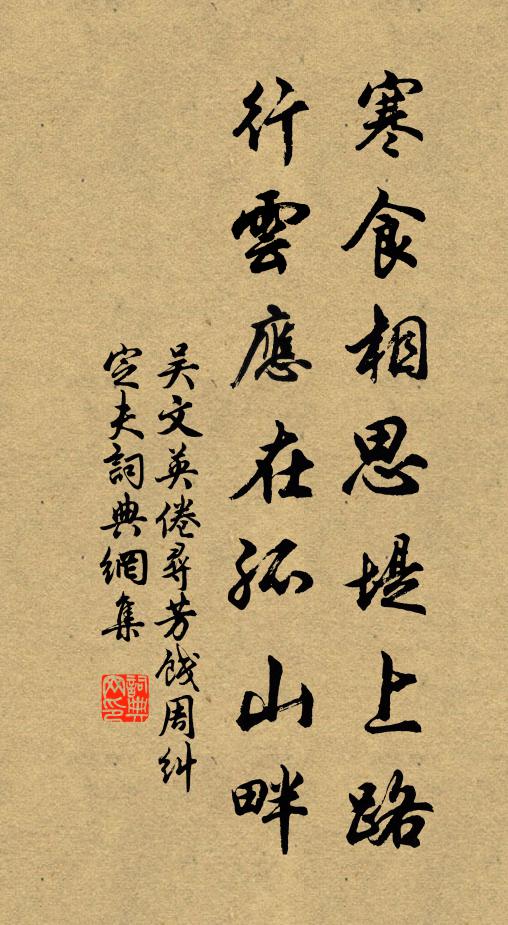 寒食相思堤上路
行雲應在孤山畔
吴文英倦尋芳餞周糾
定夫詞典網集
詞典